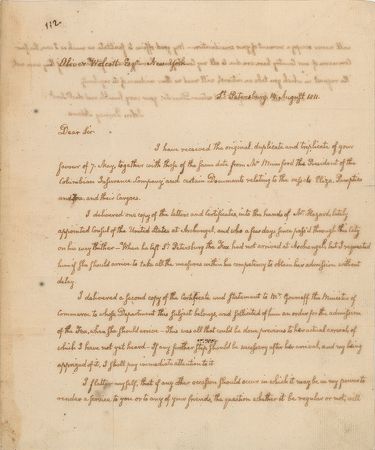 112
Oliver Wolcott Esqr. New York
St. Petersburg 14 August 1811.
Dear Sir.
I have received the original, duplicate and triplicate of your
favour of 7. May, together with those of the same date from Mr. Mumford the President of the
Columbian Insurance Company, and certain Documents relating to the vessels Eliza,
and Fox, and their Cargoes.
I delivered one copy of the letters and Certificates, into the hands of Mr. Hazard, lately
appointed Consul of the United States at Archangel, and who a few days since pass'd through this City
on his way thither — When he left St. Petersburg the Fox had not arrived at Archangel, but I requested
him if she should arrive to take all the measures within his competency to obtain her admission without
delay
I delivered a second copy of the Certificate and Statement to Mr. the Minister of
Commerce, to whose Department this subject belongs, and sollicited of him an order for the admission
of the Fox, when she should arrive — This was all that could be done previous to her actual arrival, of
which I have not yet heard — If any further step should be necessary after her arrival, and my being
apprized of it, I shall pay immediate attention to it
I flatter myself, that if any other occasion should occur in which it may be in my power to
render a service to you or to any of your friends, the question whether it be regular or not, will